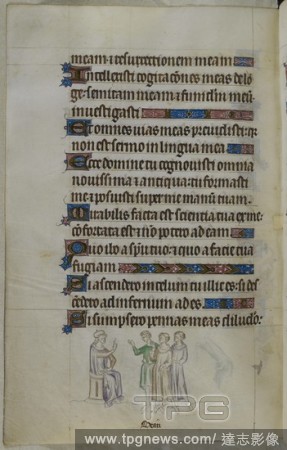 meam et resurrectionem meam
Intellexisti cogitacōnes meas de lō
ge: semitam meam et funiclm meū
investigasti
Et omnes vias meas previdisti: qz
non est sermo in lingua mea
Ecce domine tu cognovisti omnia
novissima et antiqua: tu formasti
me et posuisti super me manū tuam.
Mirabilis facta est scientia tua ex me:
cōfortata est et nō potero ad eam
Quo ibo a spū tuo: et quo a facie tua
fugiam
Si ascendero in celum tu illic es: si des
cēdero ad infernum ades
Si sumpsero pennas meas diluclo:
TPG
www.tpgnews.com/ 達志影像